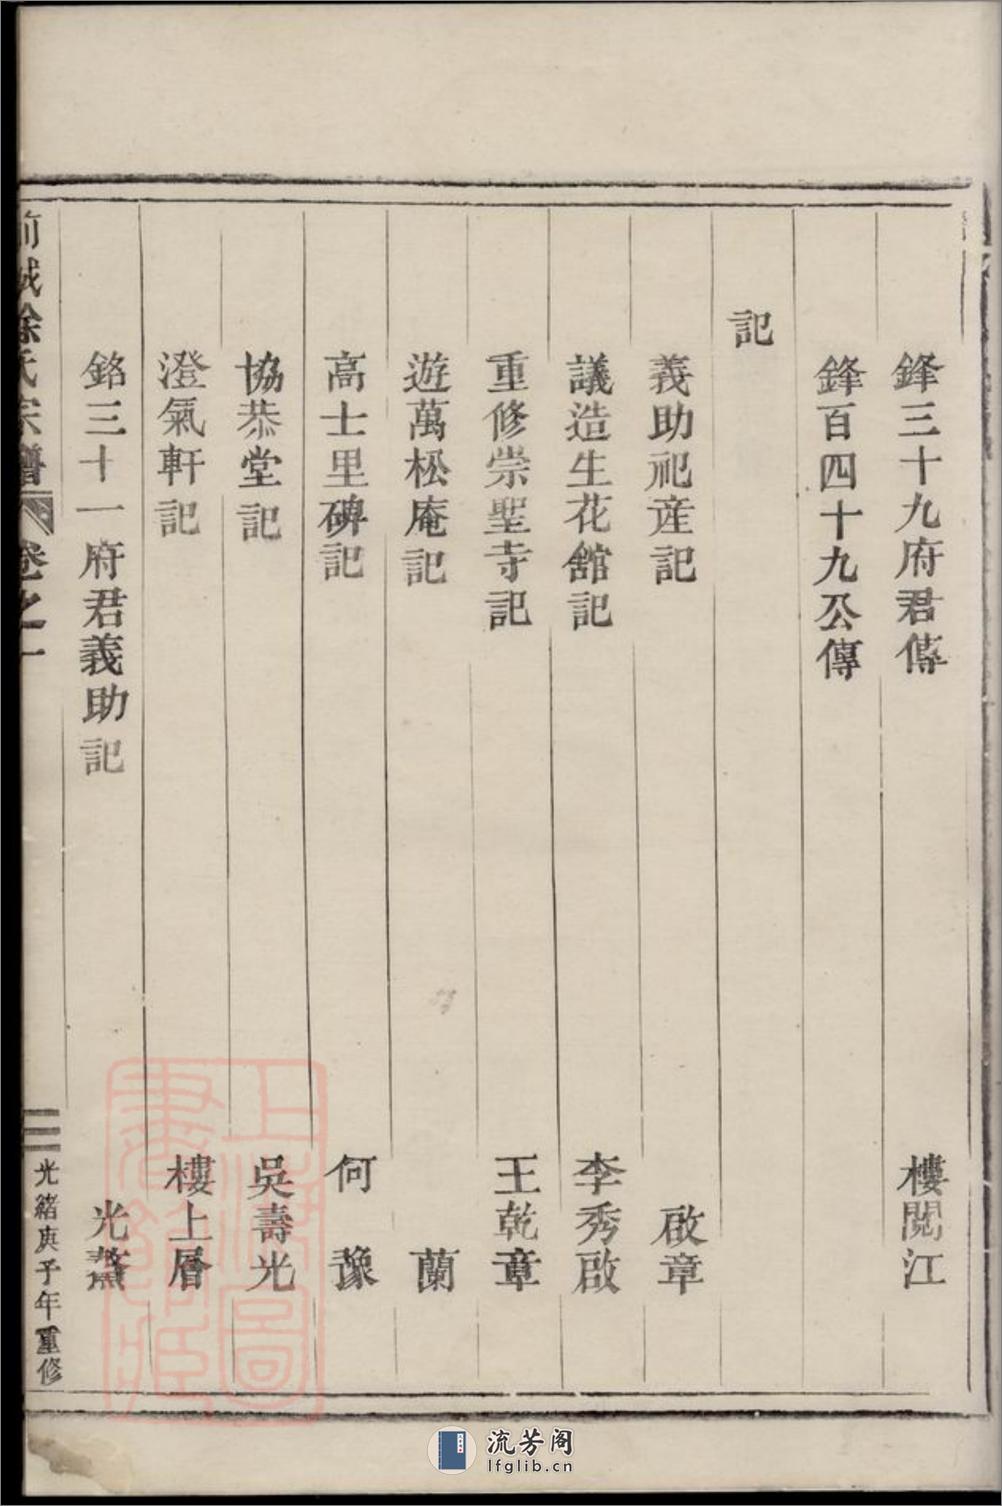 鋒三十九府君傳 樓閱江
鋒百四十九公傳
記
義助祀産記 啟章
議造生花舘記 李秀啟
重修崇聖寺記 王乾章
遊萬松庵記 蘭
高士里碑記 何豫
協恭堂記 吳壽光
澄氣軒記 樓上層
銘三十一府君義助記 光鰲
前城徐氏宗譜 卷之一 三 光緒庚子年重修
上海圖書館藏
流芳阁
lfglib.cn